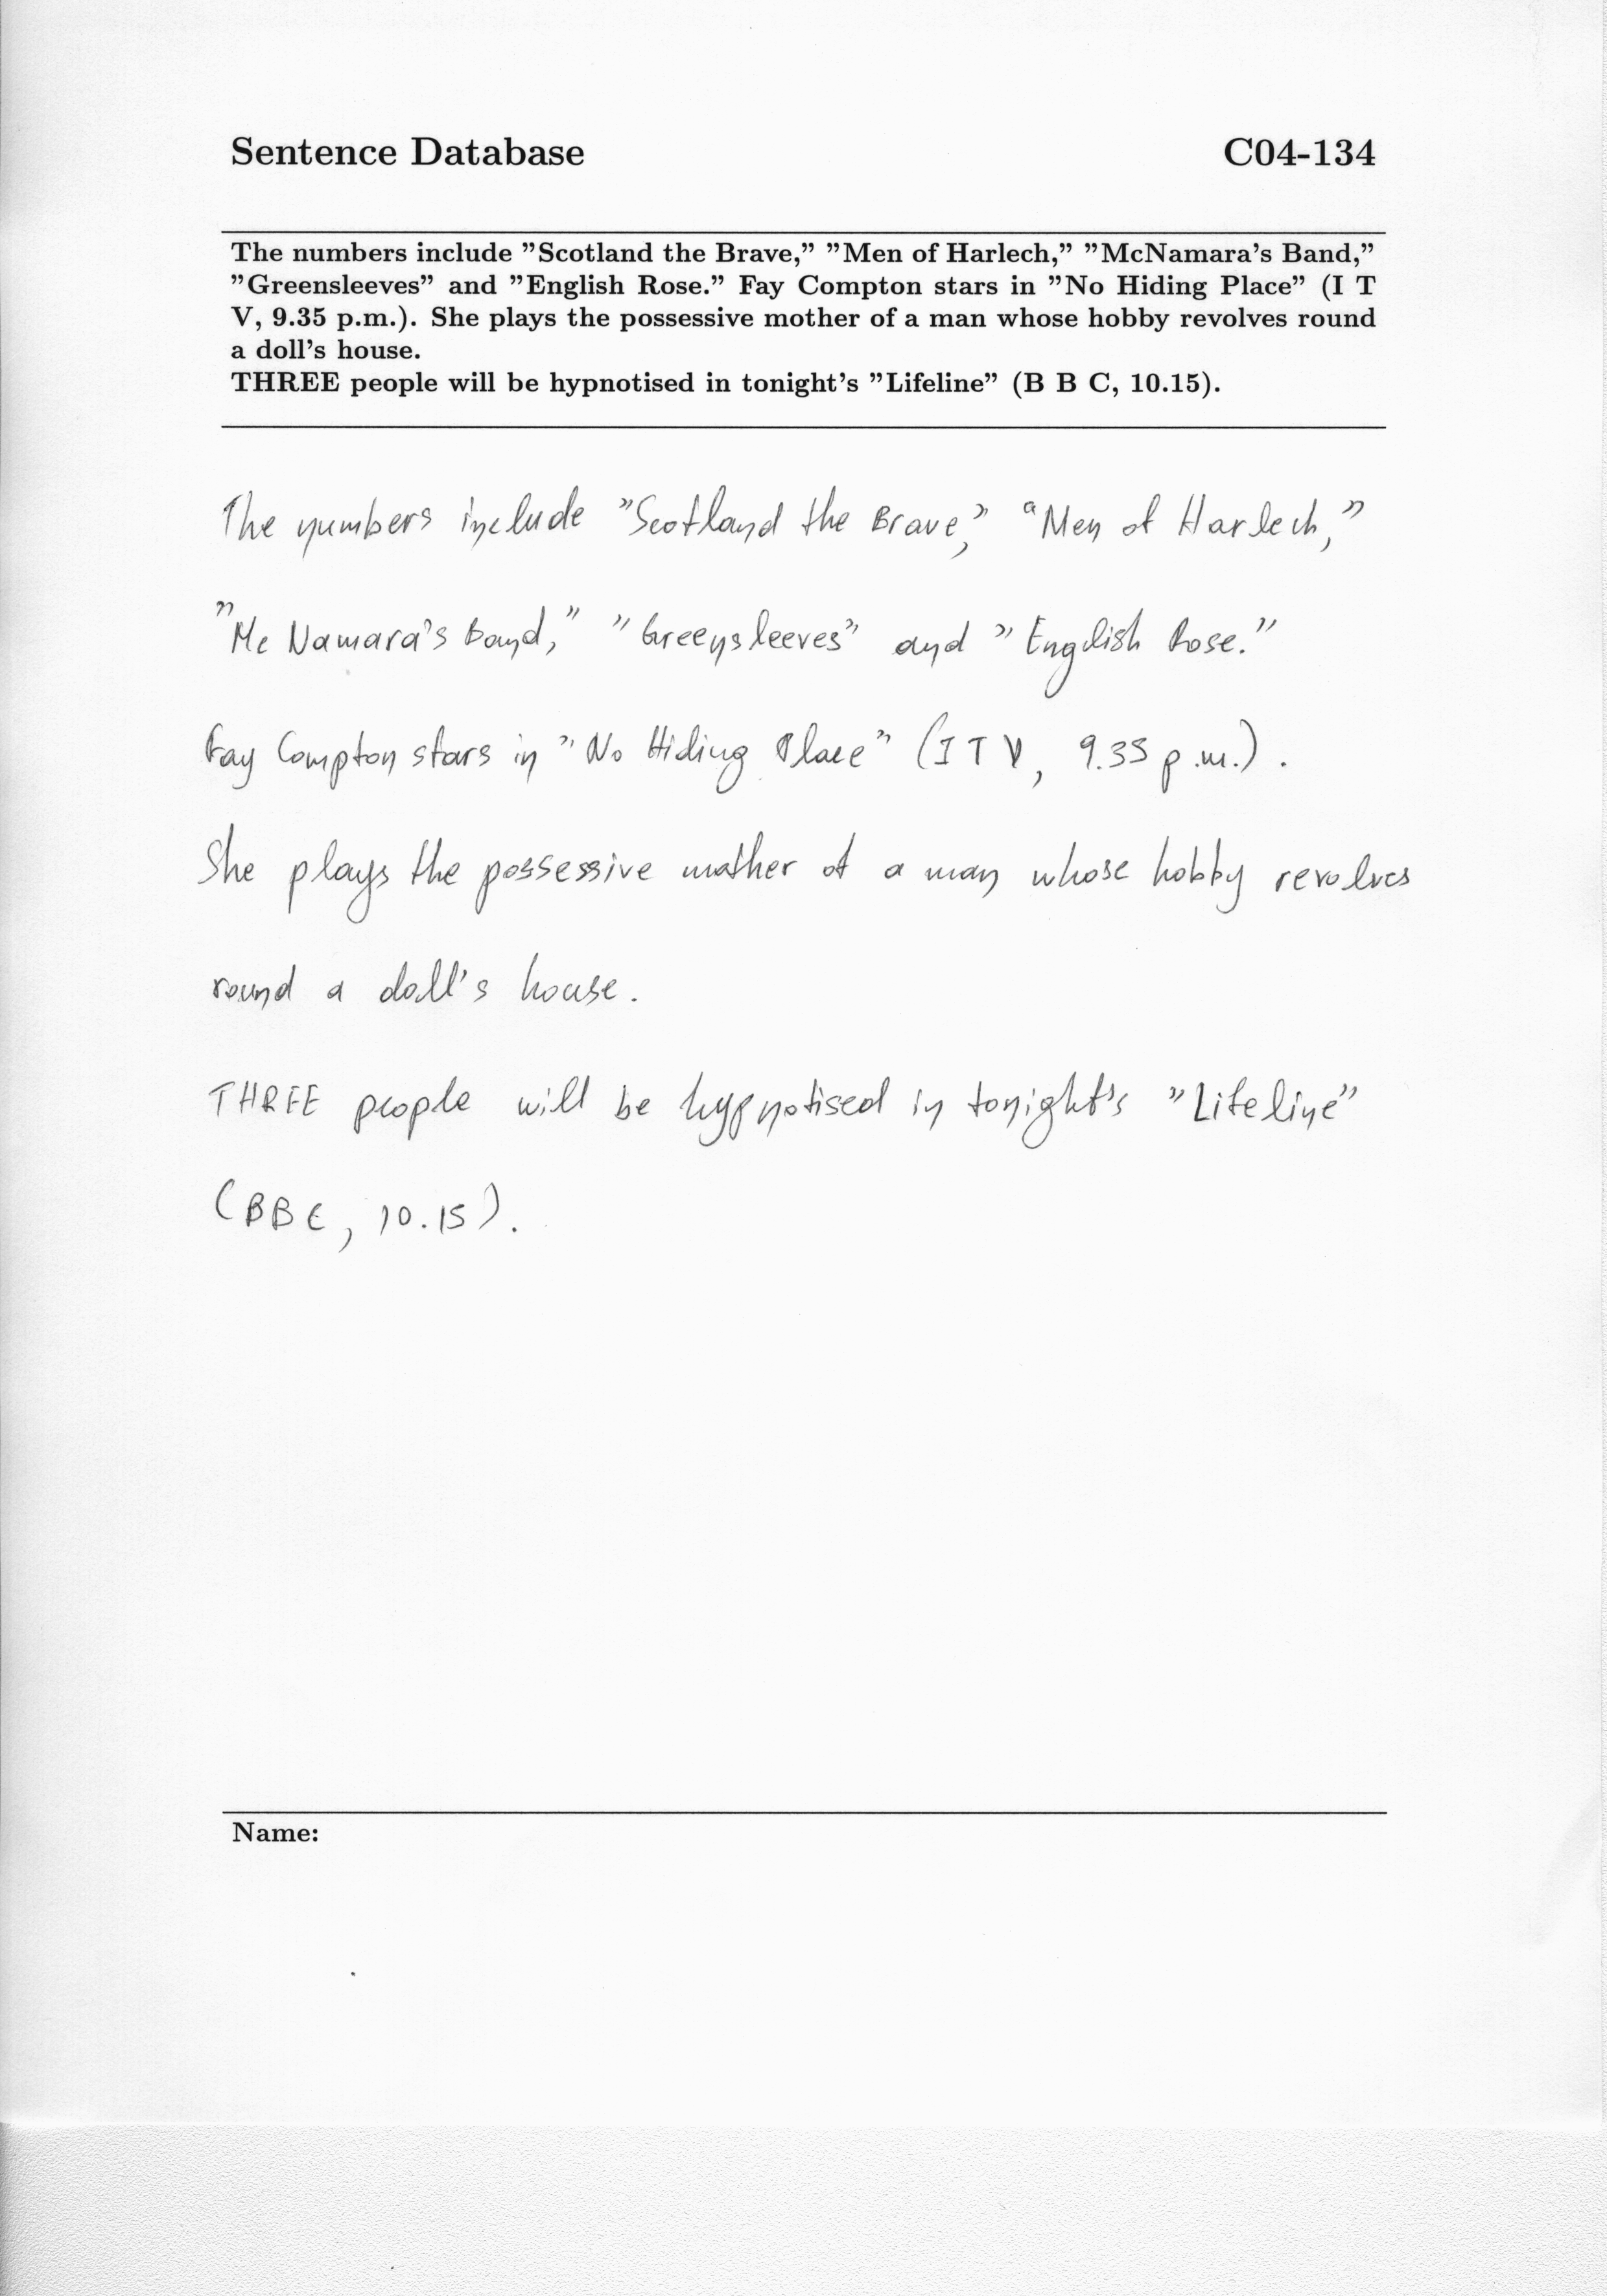 Sentence Database C04-134
The numbers include ”Scotland the Brave,” ”Men of Harlech,” ”McNamara’s Band,”
”Greensleeves” and ”English Rose.” Fay Compton stars in ”No Hiding Place” (I T
V, 9.35 p.m.). She plays the possessive mother of a man whose hobby revolves round
a doll’s house.
THREE people will be hypnotised in tonight’s ”Lifeline” (B B C, 10.15).
The numbers include ”Scotland the Brave,” “Men of Harlech,”
”Mc Namara’s Band,” ”Greensleeves” and ”English Rose.”
Fay Compton stars in ”No Hiding Place” (I T V, 9.35 p.m.).
She plays the possessive mother of a man whose hobby revolves
round a doll’s house.
THREE people will be hypnotised in tonight’s ”Lifeline”
(BBC, 10.15).
Name: